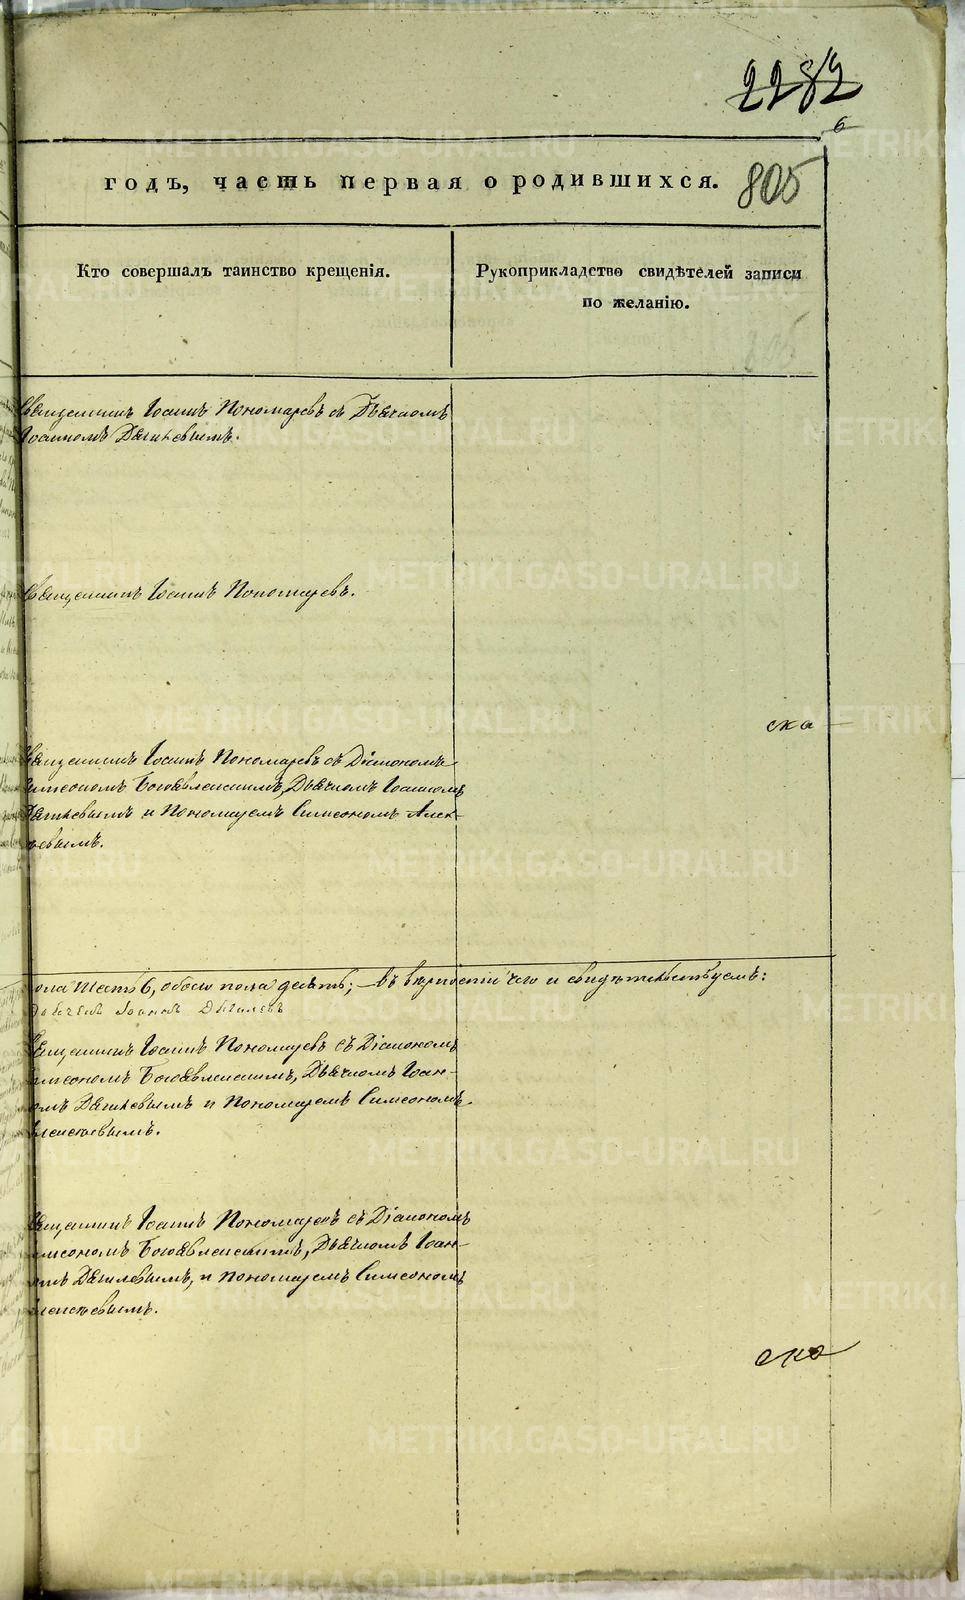 2282
6
годъ, часть первая о родившихся. 805
Кто совершалъ таинство крещенія.
Рукоприкладство свидѣтелей записи
по желанію.
Священникъ Іоаннъ Пономаревъ съ Дьячкомъ
Іоанномъ Дягилевымъ.
Священникъ Іоаннъ Пономаревъ.
ска
Священникъ Іоаннъ Пономаревъ съ Діакономъ
Симеономъ Богоявленскимъ, Дьячкомъ Іоанномъ
Дягилевымъ и Пономаремъ Симеономъ Алек-
сѣевымъ.
пола шесть 6, обоего пола десять; — въ вѣрности чего и свидѣтельствуемъ:
Дьячекъ Іоаннъ Дягилевъ
Священникъ Іоаннъ Пономаревъ съ Діакономъ
Симеономъ Богоявленскимъ, Дьячкомъ Іоан-
номъ Дягилевымъ и Пономаремъ Симеономъ
Алексѣевымъ.
Священникъ Іоаннъ Пономаревъ съ Діакономъ
Симеономъ Богоявленскимъ, Дьячкомъ Іоан-
номъ Дягилевымъ, и Пономаремъ Симеономъ
Алексѣевымъ.
ска
METRIKI.GASO-URAL.RU